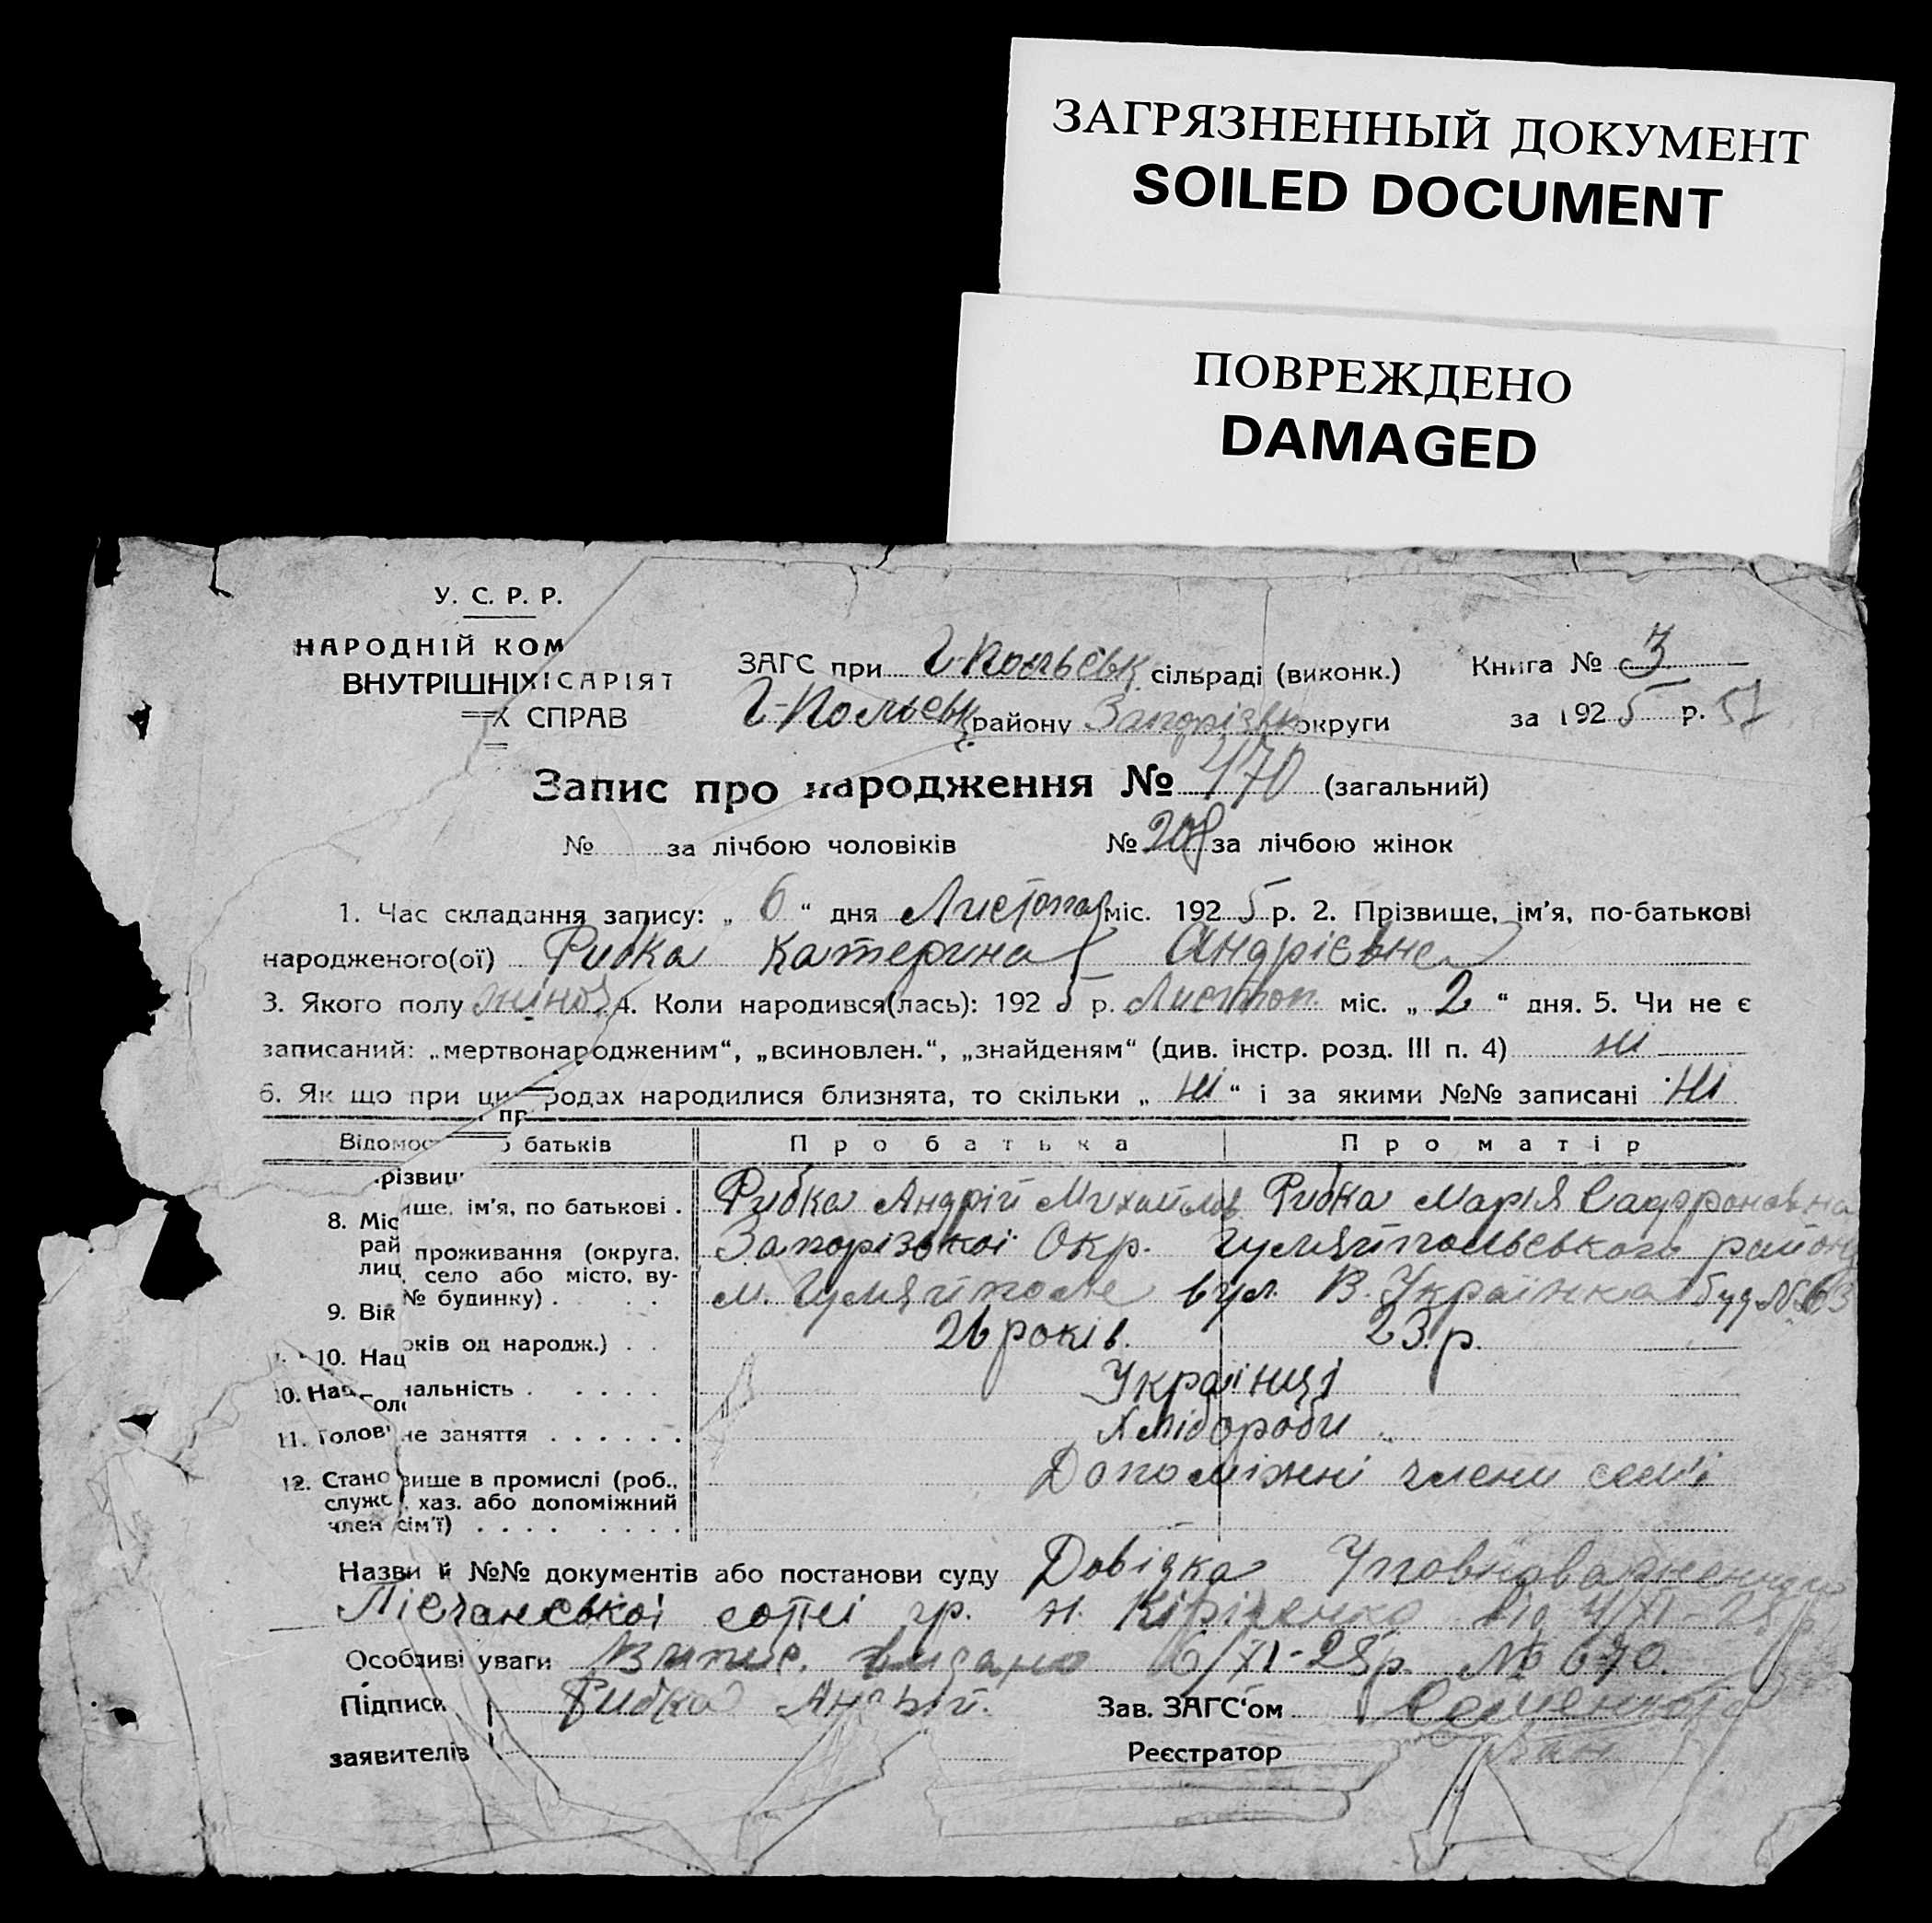 ЗАГРЯЗНЕННЫЙ ДОКУМЕНТ
SOILED DOCUMENT
ПОВРЕЖДЕНО
DAMAGED
У. С. Р. Р.
НАРОДНІЙ КОМІСАРІЯТ
ВНУТРІШНІХ СПРАВ
ЗАГС при Г-Польськ сільраді (виконк.) Книга № 3
Г-Польськ району Запорізьк округи за 1925 р. 57
Запис про народження № 470 (загальний)
№ за лічбою чоловіків № 208 за лічбою жінок
1. Час складання запису: „ 6 “ дня Листопад міс. 1925 р. 2. Прізвище, ім’я, по-батькові
народженого(ої) Рибка Катерина Андрієвна
3. Якого полу жіноч 4. Коли народився(лась): 1925 р. Листоп. міс. „ 2 “ дня. 5. Чи не є
записаний: „мертвонародженим“, „всиновлен.“, „знайденям“ (див. інстр. розд. III п. 4) ні
6. Як що при цих родах народилися близнята, то скільки „ Ні “ і за якими №№ записані Ні
Відомос про батьків Про батька Про матір
різвище, ім’я, по батькові . Рибка Андрій Михайлов Рибка Марія Сафроновна
8. Міс проживання (округа, Запорізької Окр. Гуляйпольського району
рай село або місто, ву-
лиц № будинку) . м. Гуляйполе вул. В. Українка буд № 63
9. Вік років од народж.) . . 26 років. 23 р.
10. Національність . Українці
11. Головне заняття . . . . . . Хлібороби
12. Становище в промислі (роб., Допоміжні члени сем'ї
служ. хаз. або допоміжний
член сім’ї) . . . .
Назви й №№ документів або постанови суду Довідка Уповноваженого
Пісчанської сотні гр. Кіріченко від 4/XI-25 р
Особливі уваги Витяг. видано 6/XI-25р. № 670.
Підписи Рибка Андрій. Зав. ЗАГС‘ом
заявителів Реєстратор